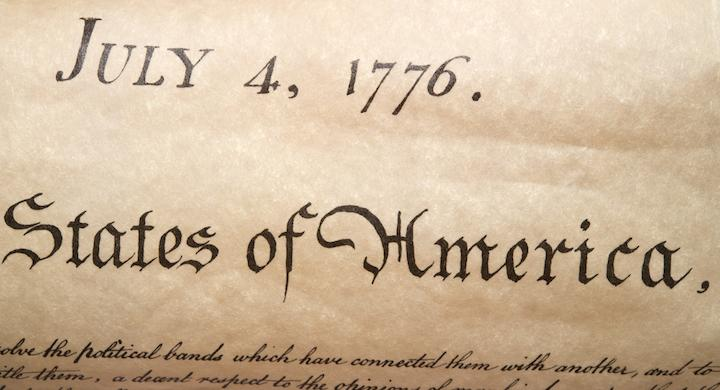 July 4, 1776.
States of America,
olve the political bands which have connected them with another, and to
itle them, a decent respect to the opinions of